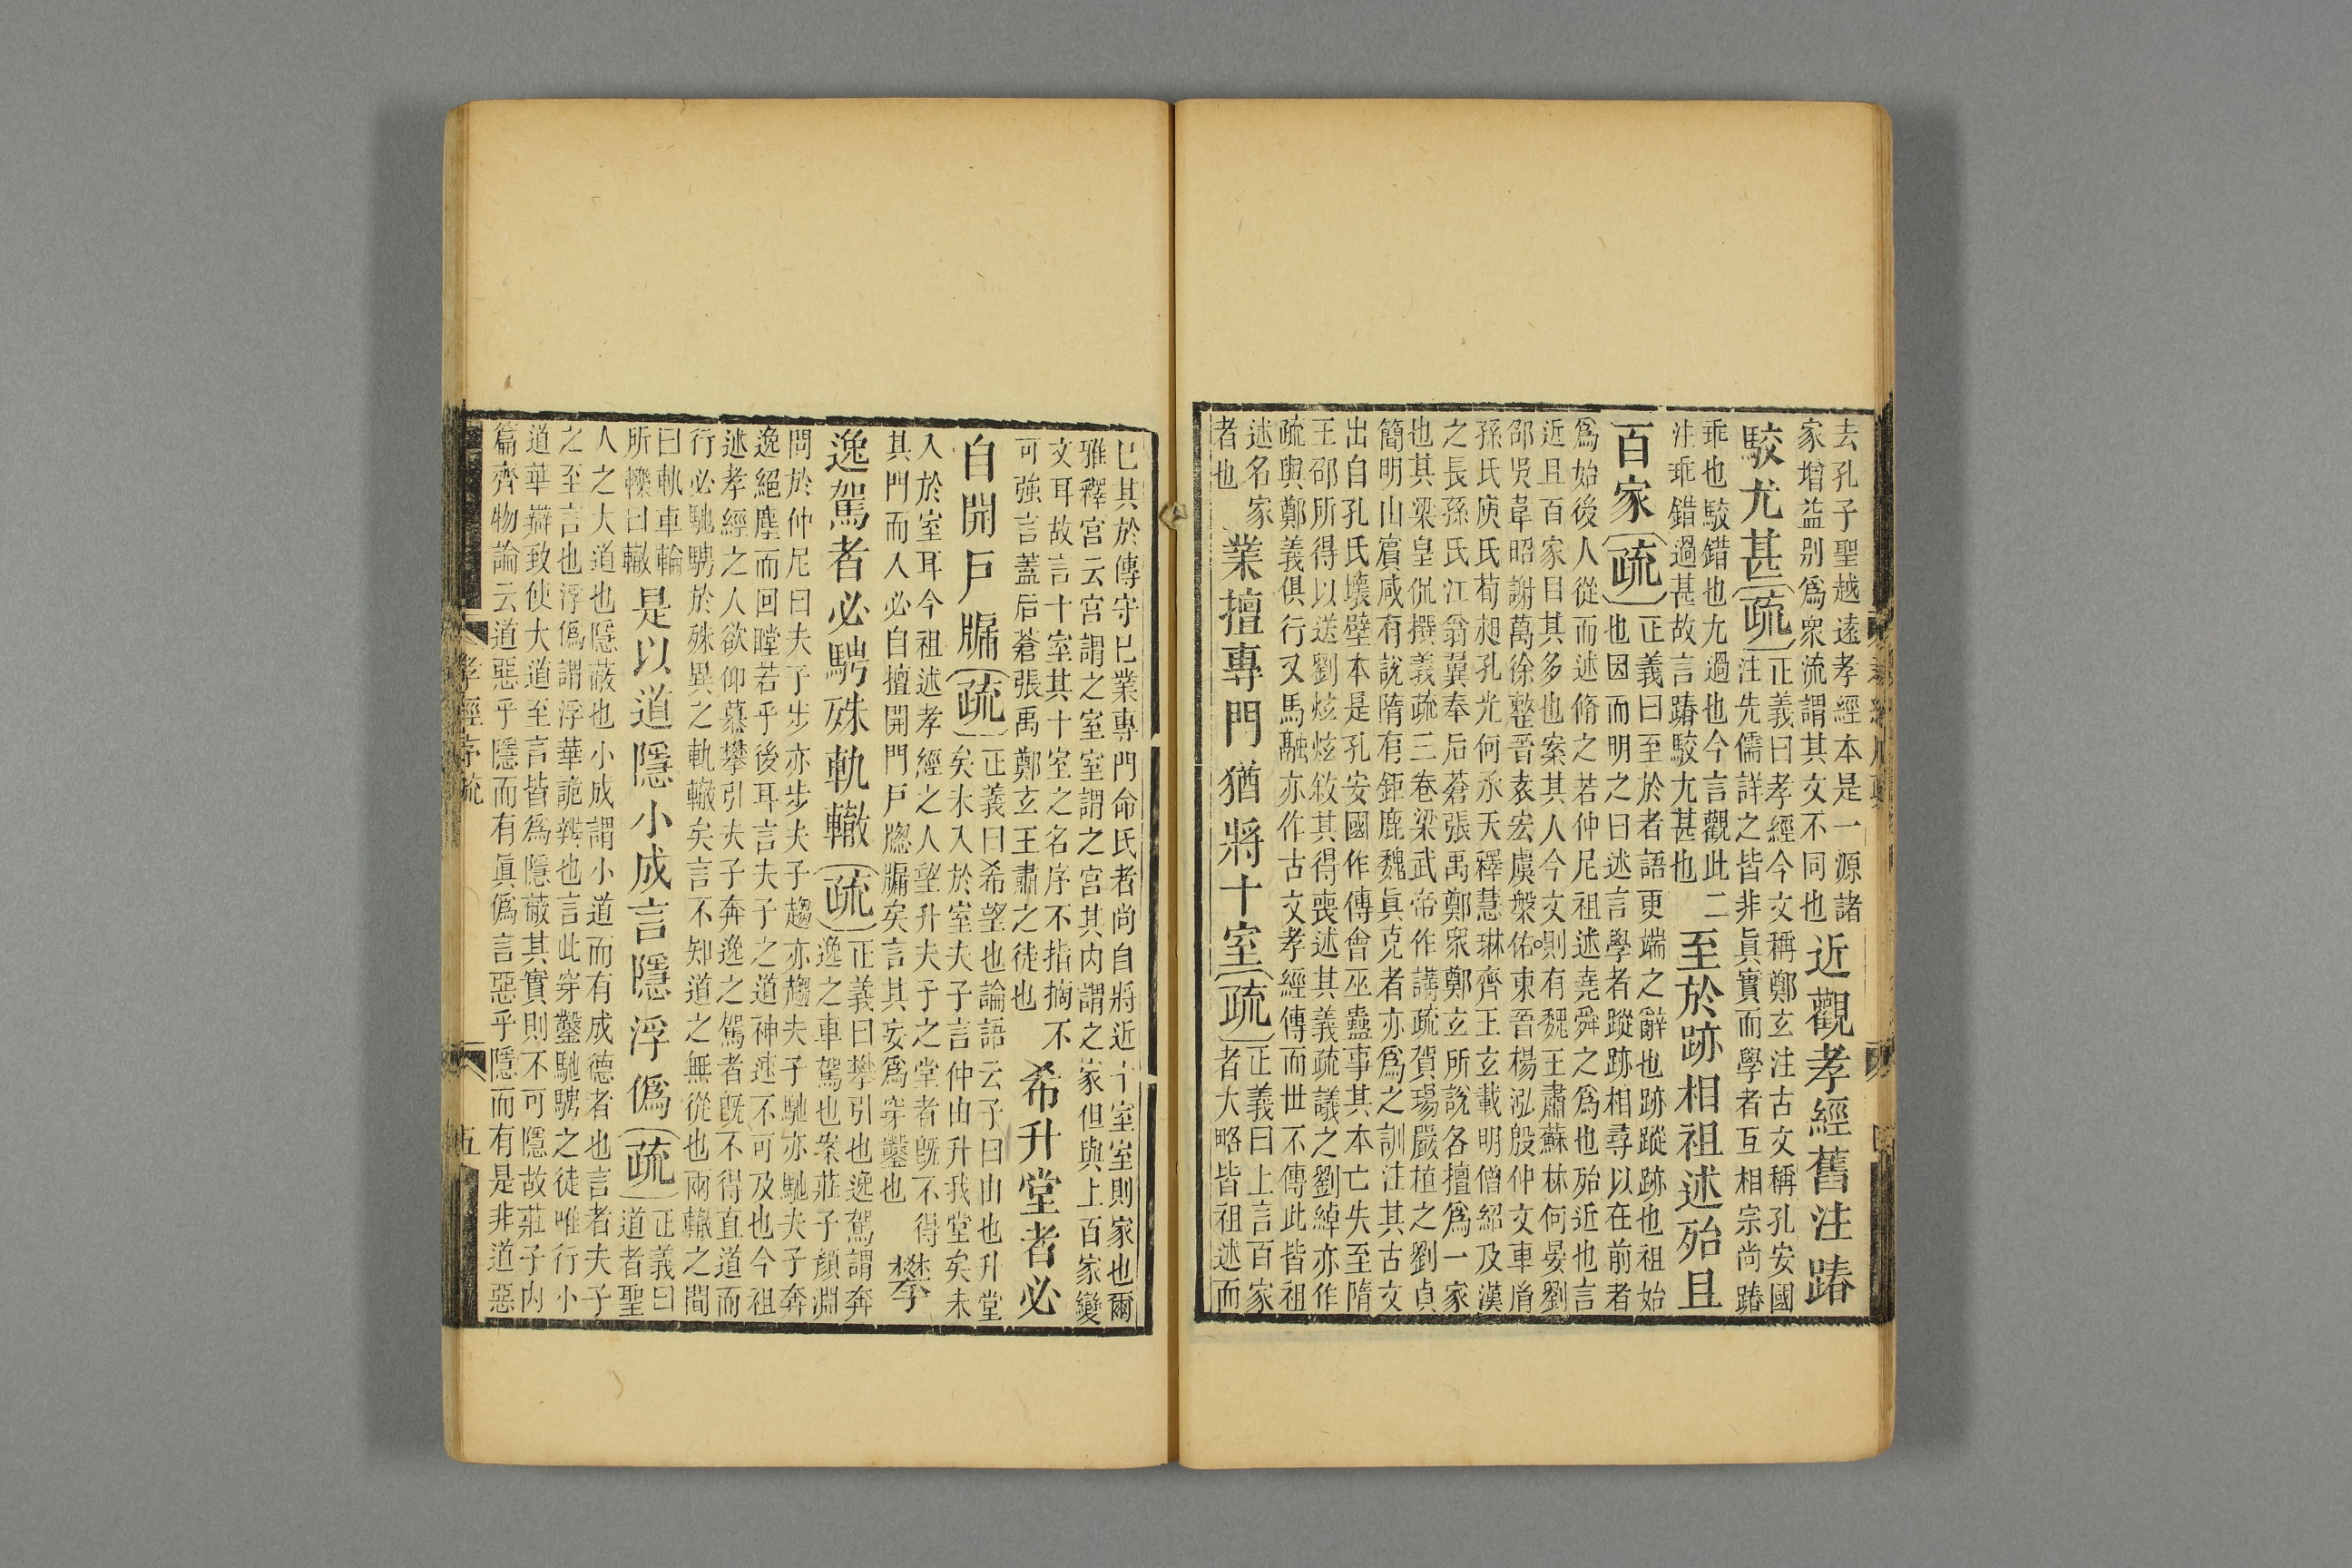 去孔子聖越遠孝經本是一源諸
家增益别爲衆流謂其文不同也
近觀孝經舊注踳
駮尤甚
疏
正義曰孝經今文稱鄭玄注古文稱孔安國
注先儒詳之皆非眞實而學者互相宗尚踳
乖也駮錯也尤過也今言觀此二
注乖錯過甚故言踳駮尤甚也
至於跡相祖述殆且
百家
疏
正義曰至於者語更端之辭也跡蹤跡也祖始
也因而明之曰述言學者蹤跡相尋以在前者
爲始後人從而述脩之若仲尼祖述堯舜之爲也殆近也言
近且百家目其多也案其人今文則有魏王肅蘇林何晏劉
邵吳韋昭謝萬徐整晉袁宏虞槃佑東晉楊泓殷仲文車胤
孫氏庾氏荀昶孔光何承天釋慧琳齊王玄載明僧紹及漢
之長孫氏江翁翼奉后蒼張禹鄭衆鄭玄所說各擅爲一家
也其梁皇侃撰義疏三卷梁武帝作講疏賀瑒嚴植之劉貞
簡明山賓咸有說隋有鉅鹿魏眞克者亦爲之訓注其古文
出自孔氏壞壁本是孔安國作傳會巫蠱事其本亡失至隋
王邵所得以送劉炫炫敘其得喪述其義疏議之劉綽亦作
疏與鄭義俱行又馬融亦作古文孝經傳而世不傳此皆祖
述名家
者也
業擅專門猶將十室
疏
正義曰上言百家
者大略皆祖述而
已其於傳守已業專門命氏者尚自將近十室室則家也爾
雅釋宮云宮謂之室室謂之宮其内謂之家但與上百家變
文耳故言十室其十室之名序不指摘不
可強言蓋后蒼張禹鄭玄王肅之徒也
希升堂者必
自開戶牖
疏
正義曰希望也論語云子曰由也升堂
矣未入於室夫子言仲由升我堂矣未
入於室耳今祖述孝經之人望升夫子之堂者旣不得
其門而入必自擅開門戶牕牖矣言其妄爲穿鑿也
攀
逸駕者必騁殊軌轍
疏
正義曰攀引也逸駕謂奔
逸之車駕也案莊子顏淵
問於仲尼曰夫子步亦步夫子趨亦趨夫子馳亦馳夫子奔
逸絕塵而回瞠若乎後耳言夫子之道神速不可及也今祖
述孝經之人欲仰慕攀引夫子奔逸之駕者旣不得直道而
行必馳騁於殊異之軌轍矣言不知道之無從也兩轍之間
曰軌車輪
所轢曰轍
是以道隱小成言隱浮僞
疏
正義曰
道者聖
人之大道也隱蔽也小成謂小道而有成德者也言者夫子
之至言也浮僞謂浮華詭辨也言此穿鑿馳騁之徒唯行小
道華辯致使大道至言皆爲隱蔽其實則不可隱故莊子内
篇齊物論云道惡乎隱而有眞僞言惡乎隱而有是非道惡
孝經序疏
五